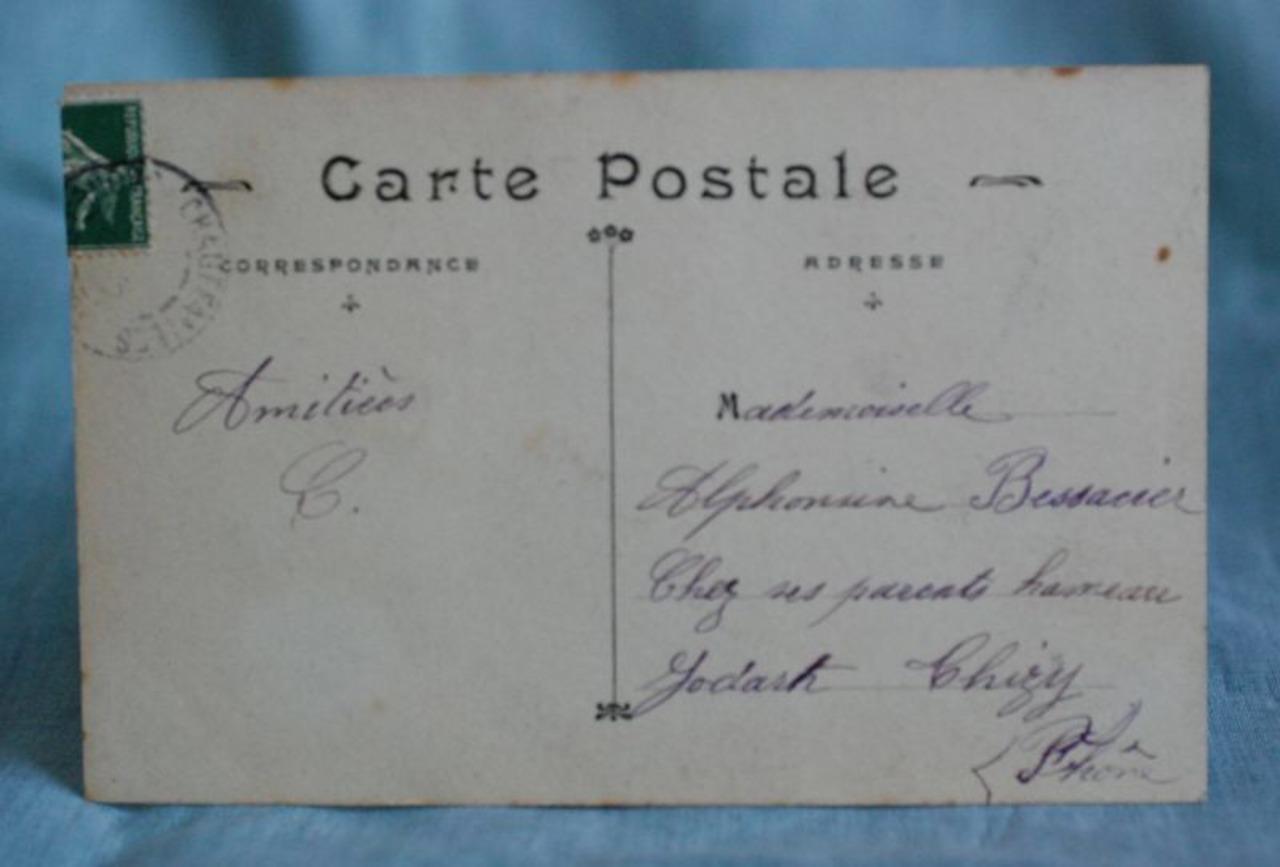 Carte Postale
CORRESPONDANCE
ADRESSE
Amitiès
C.
Mademoiselle
Alphonsine Bessacier
Chez ses parents hameau
Jodart Chizy
Rhône